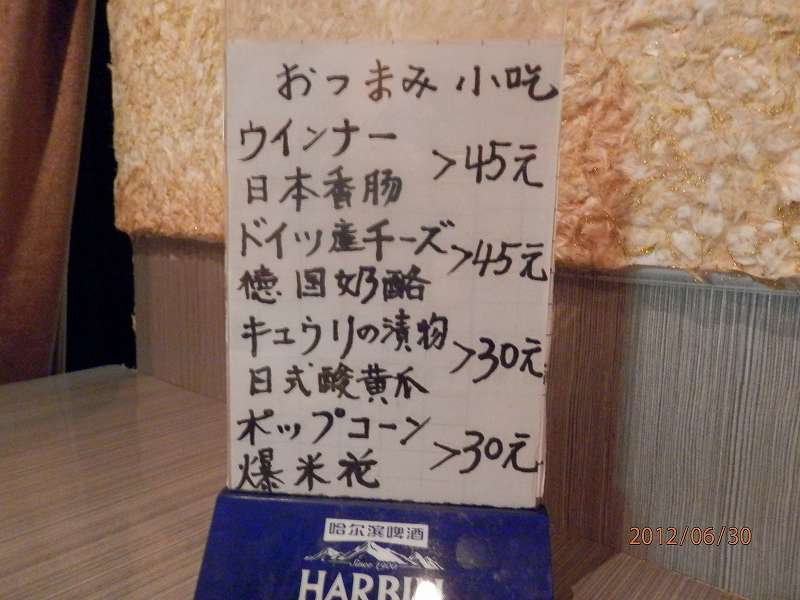 おつまみ 小吃
ウインナー
日本香肠
>45元
ドイツ産チーズ
德国奶酪
>45元
キュウリの漬物
日式酸黄瓜
>30元
ポップコーン
爆米花
>30元
哈尔滨啤酒
Since 1900
HARBIN
2012/06/30